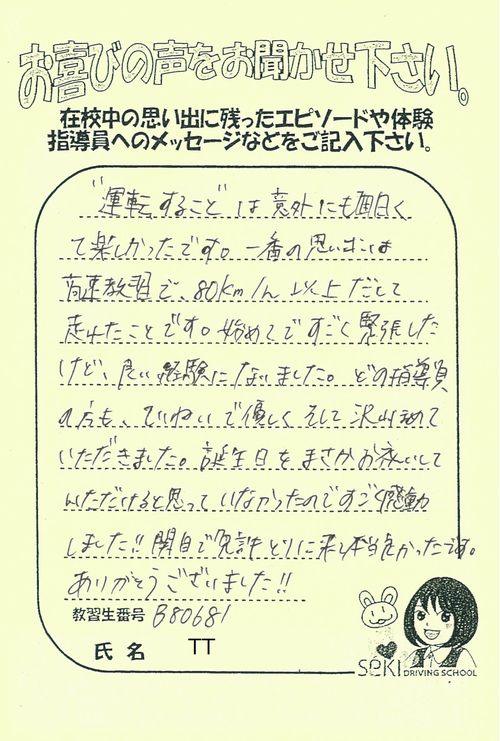 お喜びの声をお聞かせ下さい。
在校中の思い出に残ったエピソードや体験
指導員へのメッセージなどをご記入下さい。
"運転すること"は意外にも面白く
て楽しかったです。一番の思い出は
高速教習で、80km/h 以上だして
走れたことです。始めてですごく緊張した
けど、良い経験になりました。どの指導員
の方も、ていねいで優しくそして沢山ほめて
いただきました。誕生日をまさかお祝いして
いただけると思っていなかったのですごく感動
しました!! 関自で免許とりに来て本当良かったです。
ありがとうございました!!
教習生番号 B80681
氏名 TT
SEKI DRIVING SCHOOL